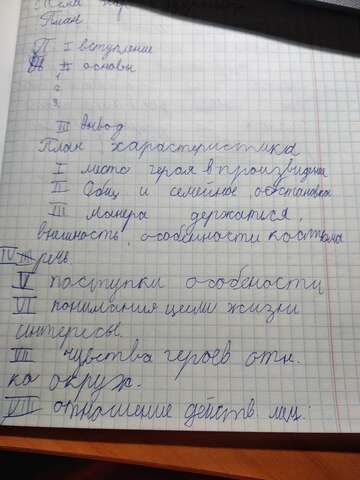 План
I вступление
II основы
1
2
3
III вывод
План характеристика
I место героя в произведение
II Общ и семейное обстановка
III Манера держаться,
внешность, особенности костюма
IV речь.
V поступки особености
VI понимания цели жизни
интересы.
VII чувства героев отн.
ко окруж.
VIII отношение действ лиц.